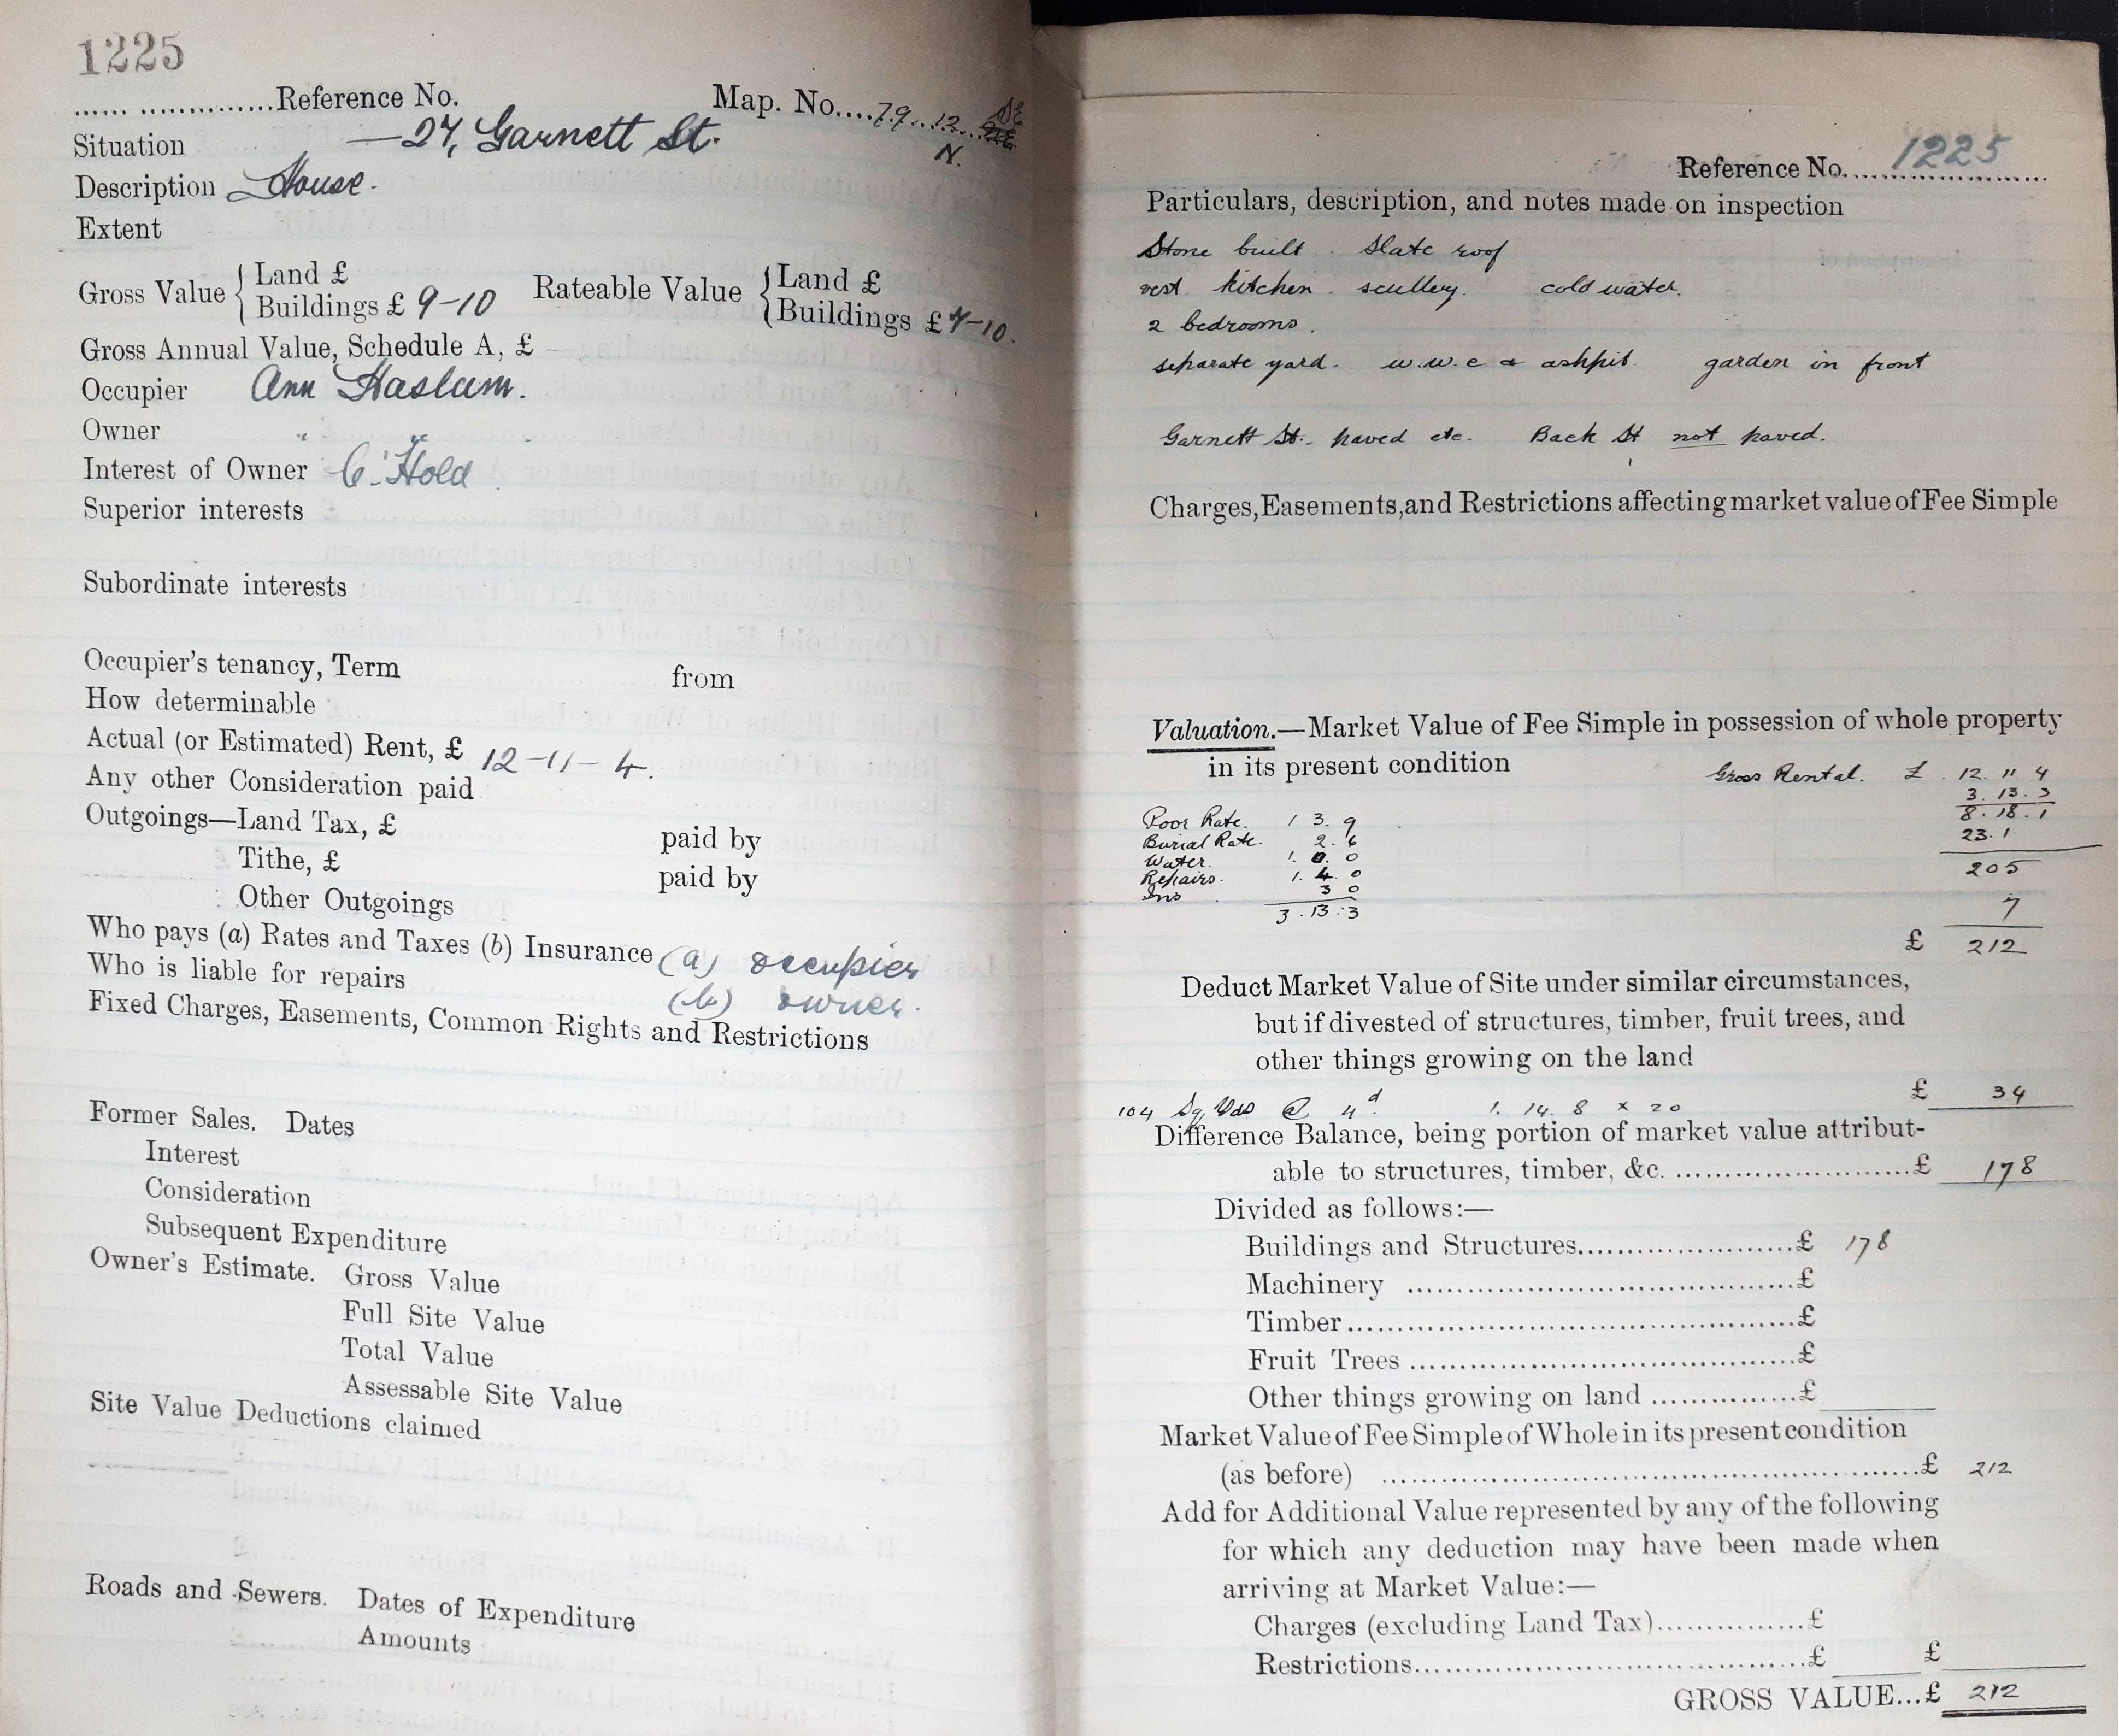 1225
...................Reference No. Map. No....79..12...SE
N.
Situation —27, Garnett St.
Description House.
Extent
Gross Value { Land £ Rateable Value { Land £
Buildings £ 9-10 Buildings £ 7-10.
Gross Annual Value, Schedule A, £
Occupier Ann Haslam.
Owner " "
Interest of Owner C. Hold
Superior interests
Subordinate interests
Occupier's tenancy, Term from
How determinable
Actual (or Estimated) Rent, £ 12-11-4.
Any other Consideration paid
Outgoings—Land Tax, £ paid by
Tithe, £ paid by
Other Outgoings
Who pays (a) Rates and Taxes (b) Insurance (a) occupier
Who is liable for repairs (b) owner.
Fixed Charges, Easements, Common Rights and Restrictions
Former Sales. Dates
Interest
Consideration
Subsequent Expenditure
Owner's Estimate. Gross Value
Full Site Value
Total Value
Assessable Site Value
Site Value Deductions claimed
Roads and Sewers. Dates of Expenditure
Amounts
Reference No. 1225
Particulars, description, and notes made on inspection
Stone built . Slate roof
vest. kitchen . scullery. cold water.
2 bedrooms.
separate yard. w.w.c & ashpit. garden in front
Garnett St. paved etc. Back St not paved.
Charges, Easements, and Restrictions affecting market value of Fee Simple
Valuation.—Market Value of Fee Simple in possession of whole property
in its present condition
Gross Rental. £ . 12. 11 4
3. 13. 3
8. 18. 1
23. 1
205
7
£ 212
Poor Rate. 1 3. 9
Burial Rate. 2. 6
Water. 1. 0. 0
Repairs. 1. 4. 0
Ins 3 0
3. 13. 3
Deduct Market Value of Site under similar circumstances,
but if divested of structures, timber, fruit trees, and
other things growing on the land
104 Sq Yds @ 4d. 1. 14. 8 x 20 £ 34
Difference Balance, being portion of market value attribut-
able to structures, timber, &c. ........................£ 178
Divided as follows:—
Buildings and Structures......................£ 178
Machinery ........................................£
Timber..............................................£
Fruit Trees .......................................£
Other things growing on land ...............£
Market Value of Fee Simple of Whole in its present condition
(as before) ........................................................£ 212
Add for Additional Value represented by any of the following
for which any deduction may have been made when
arriving at Market Value:—
Charges (excluding Land Tax)...............£
Restrictions.......................................£ £
GROSS VALUE...£ 212